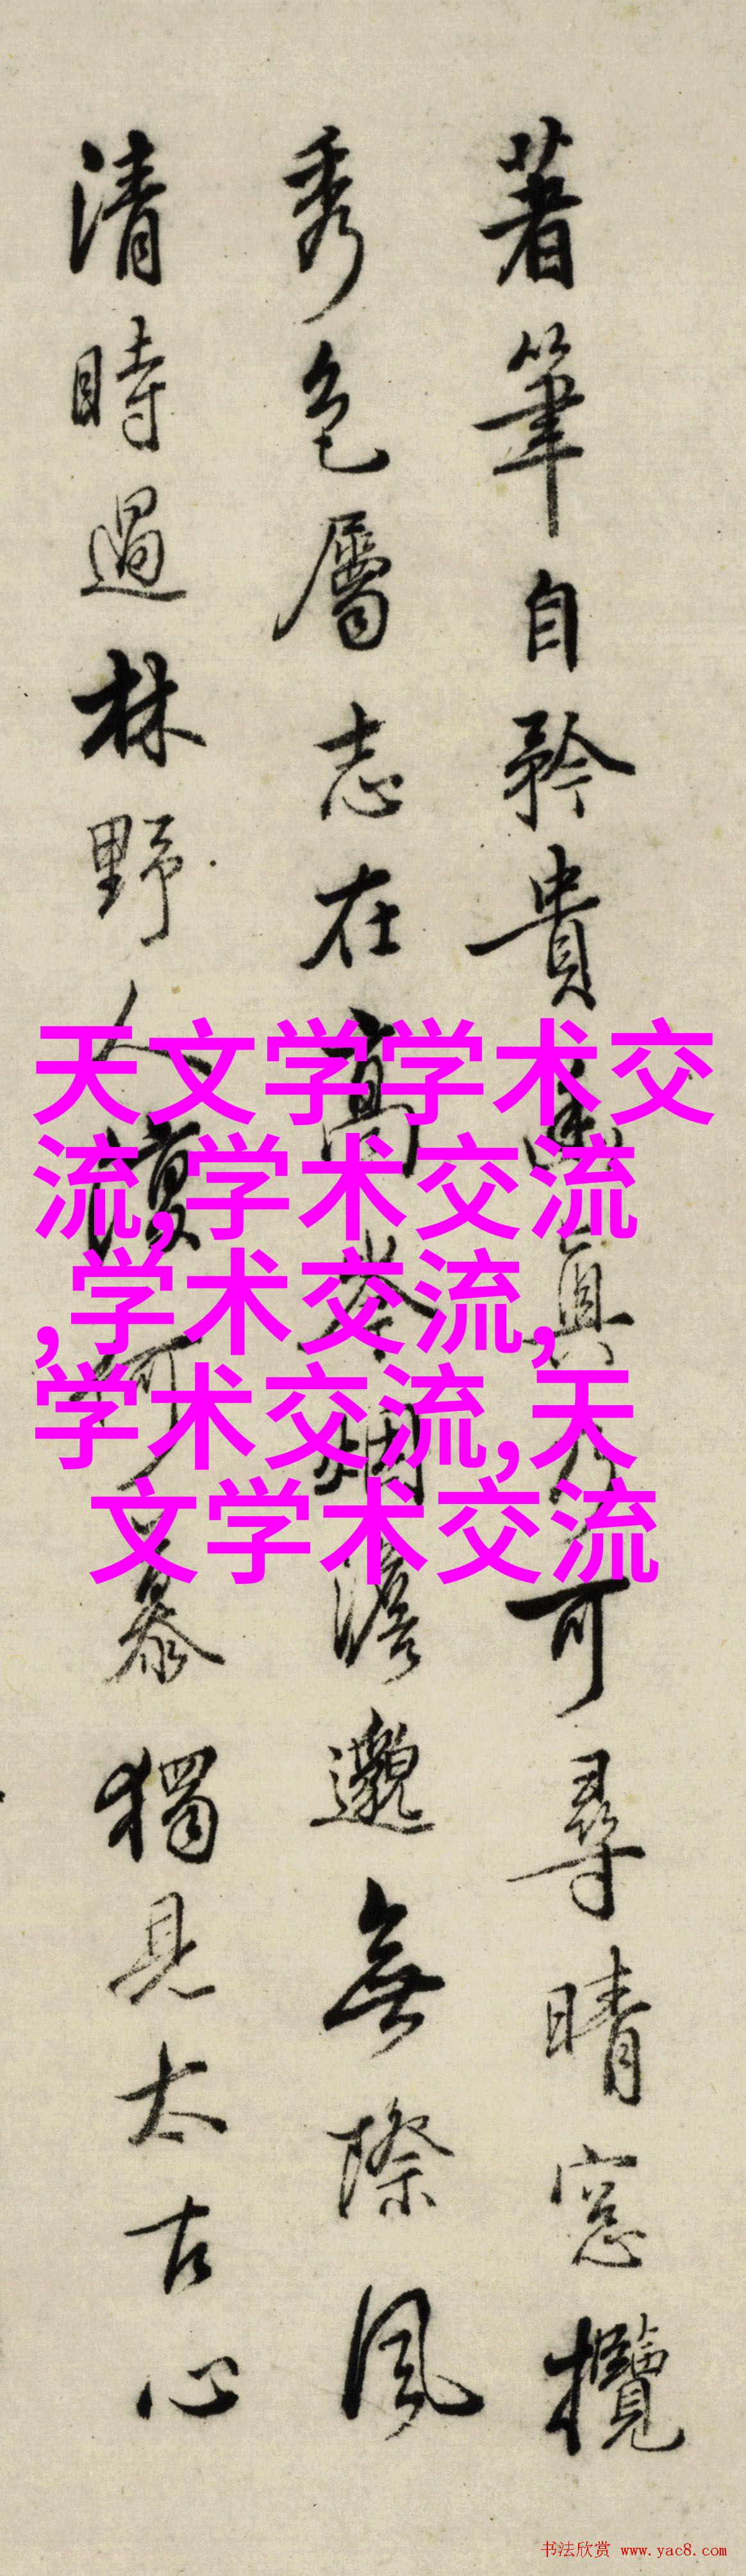 著筆自矜貴真可尋晴窓攬
秀色屬志在高烟澹邈無際風
清時過林野人慕獨見太古心
天文学学术交
流,学术交流
,学术交流,
学术交流,天
文学术交流
书法欣赏 www.yac8.com